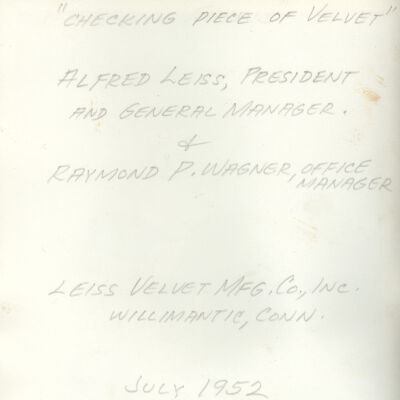 "CHECKING PIECE OF VELVET"
ALFRED LEISS, PRESIDENT
AND GENERAL MANAGER.
&
RAYMOND P. WAGNER, OFFICE
MANAGER
LEISS VELVET MFG. CO., INC.
WILLIMANTIC, CONN.
JULY 1952